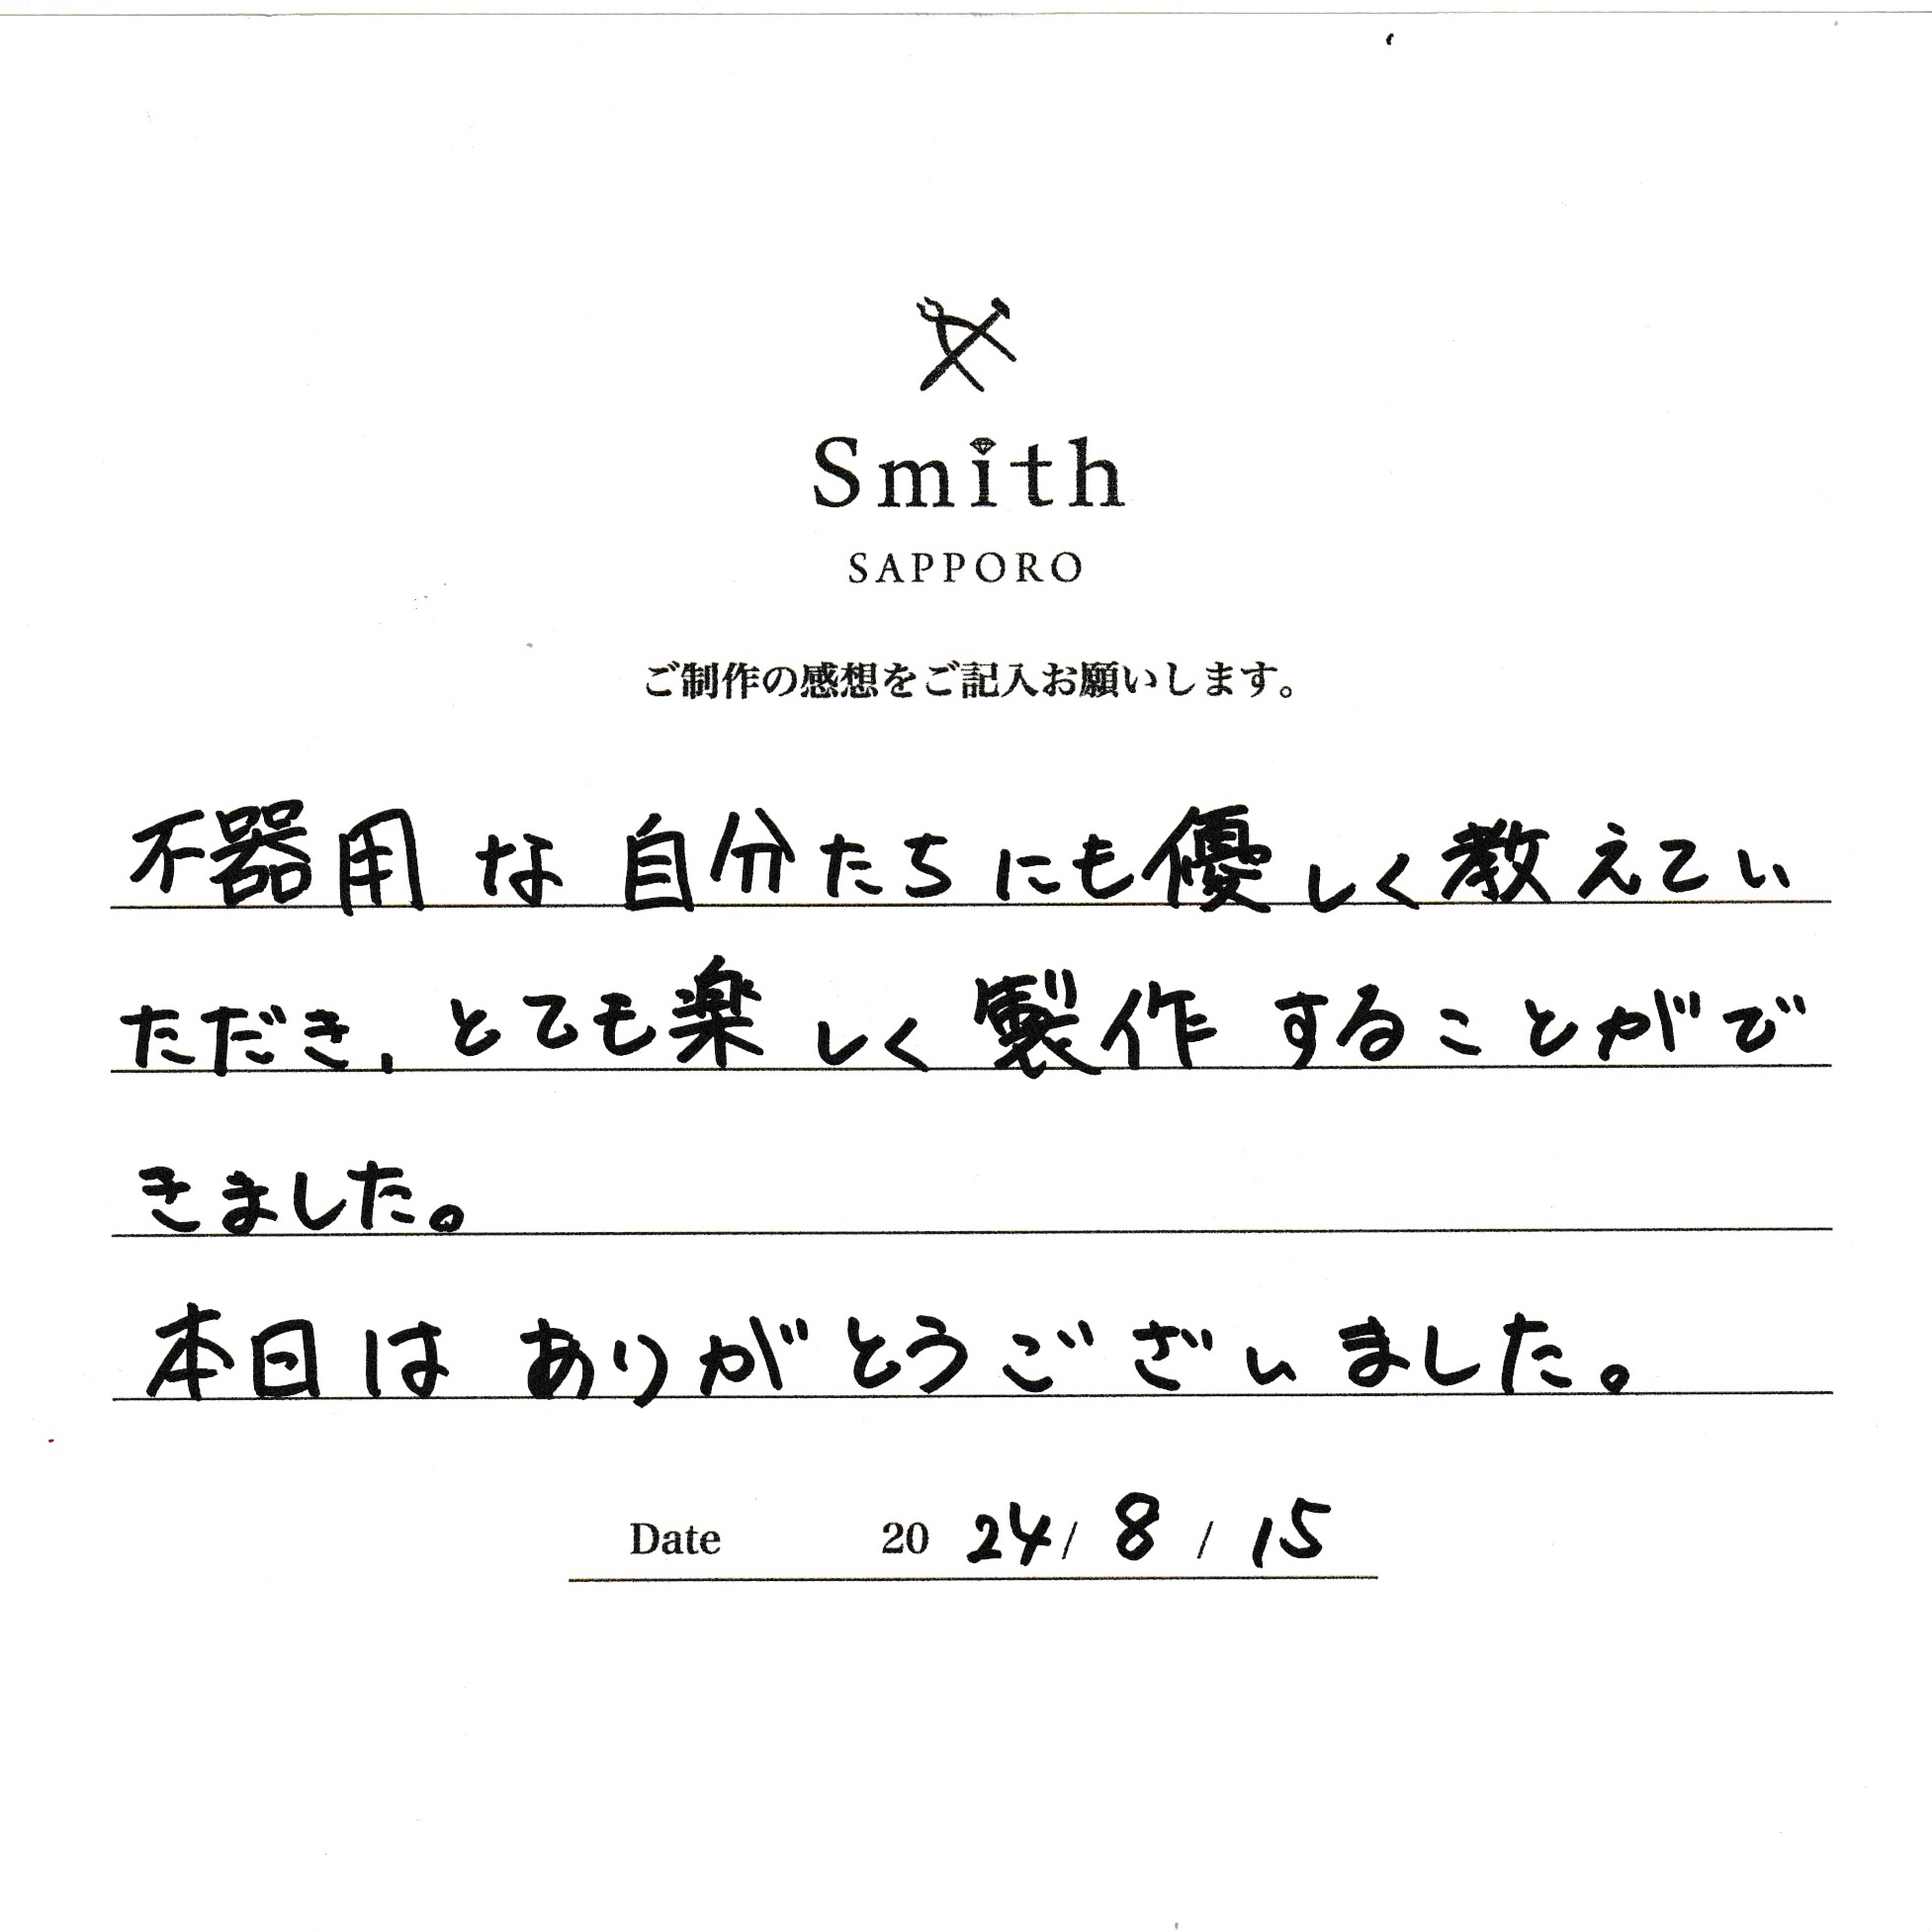 Smith
SAPPORO
ご制作の感想をご記入お願いします。
不器用な自分たちにも優しく教えてい
ただき、とても楽しく製作することがで
きました。
本日はありがとうございました。
Date 2024/8/15